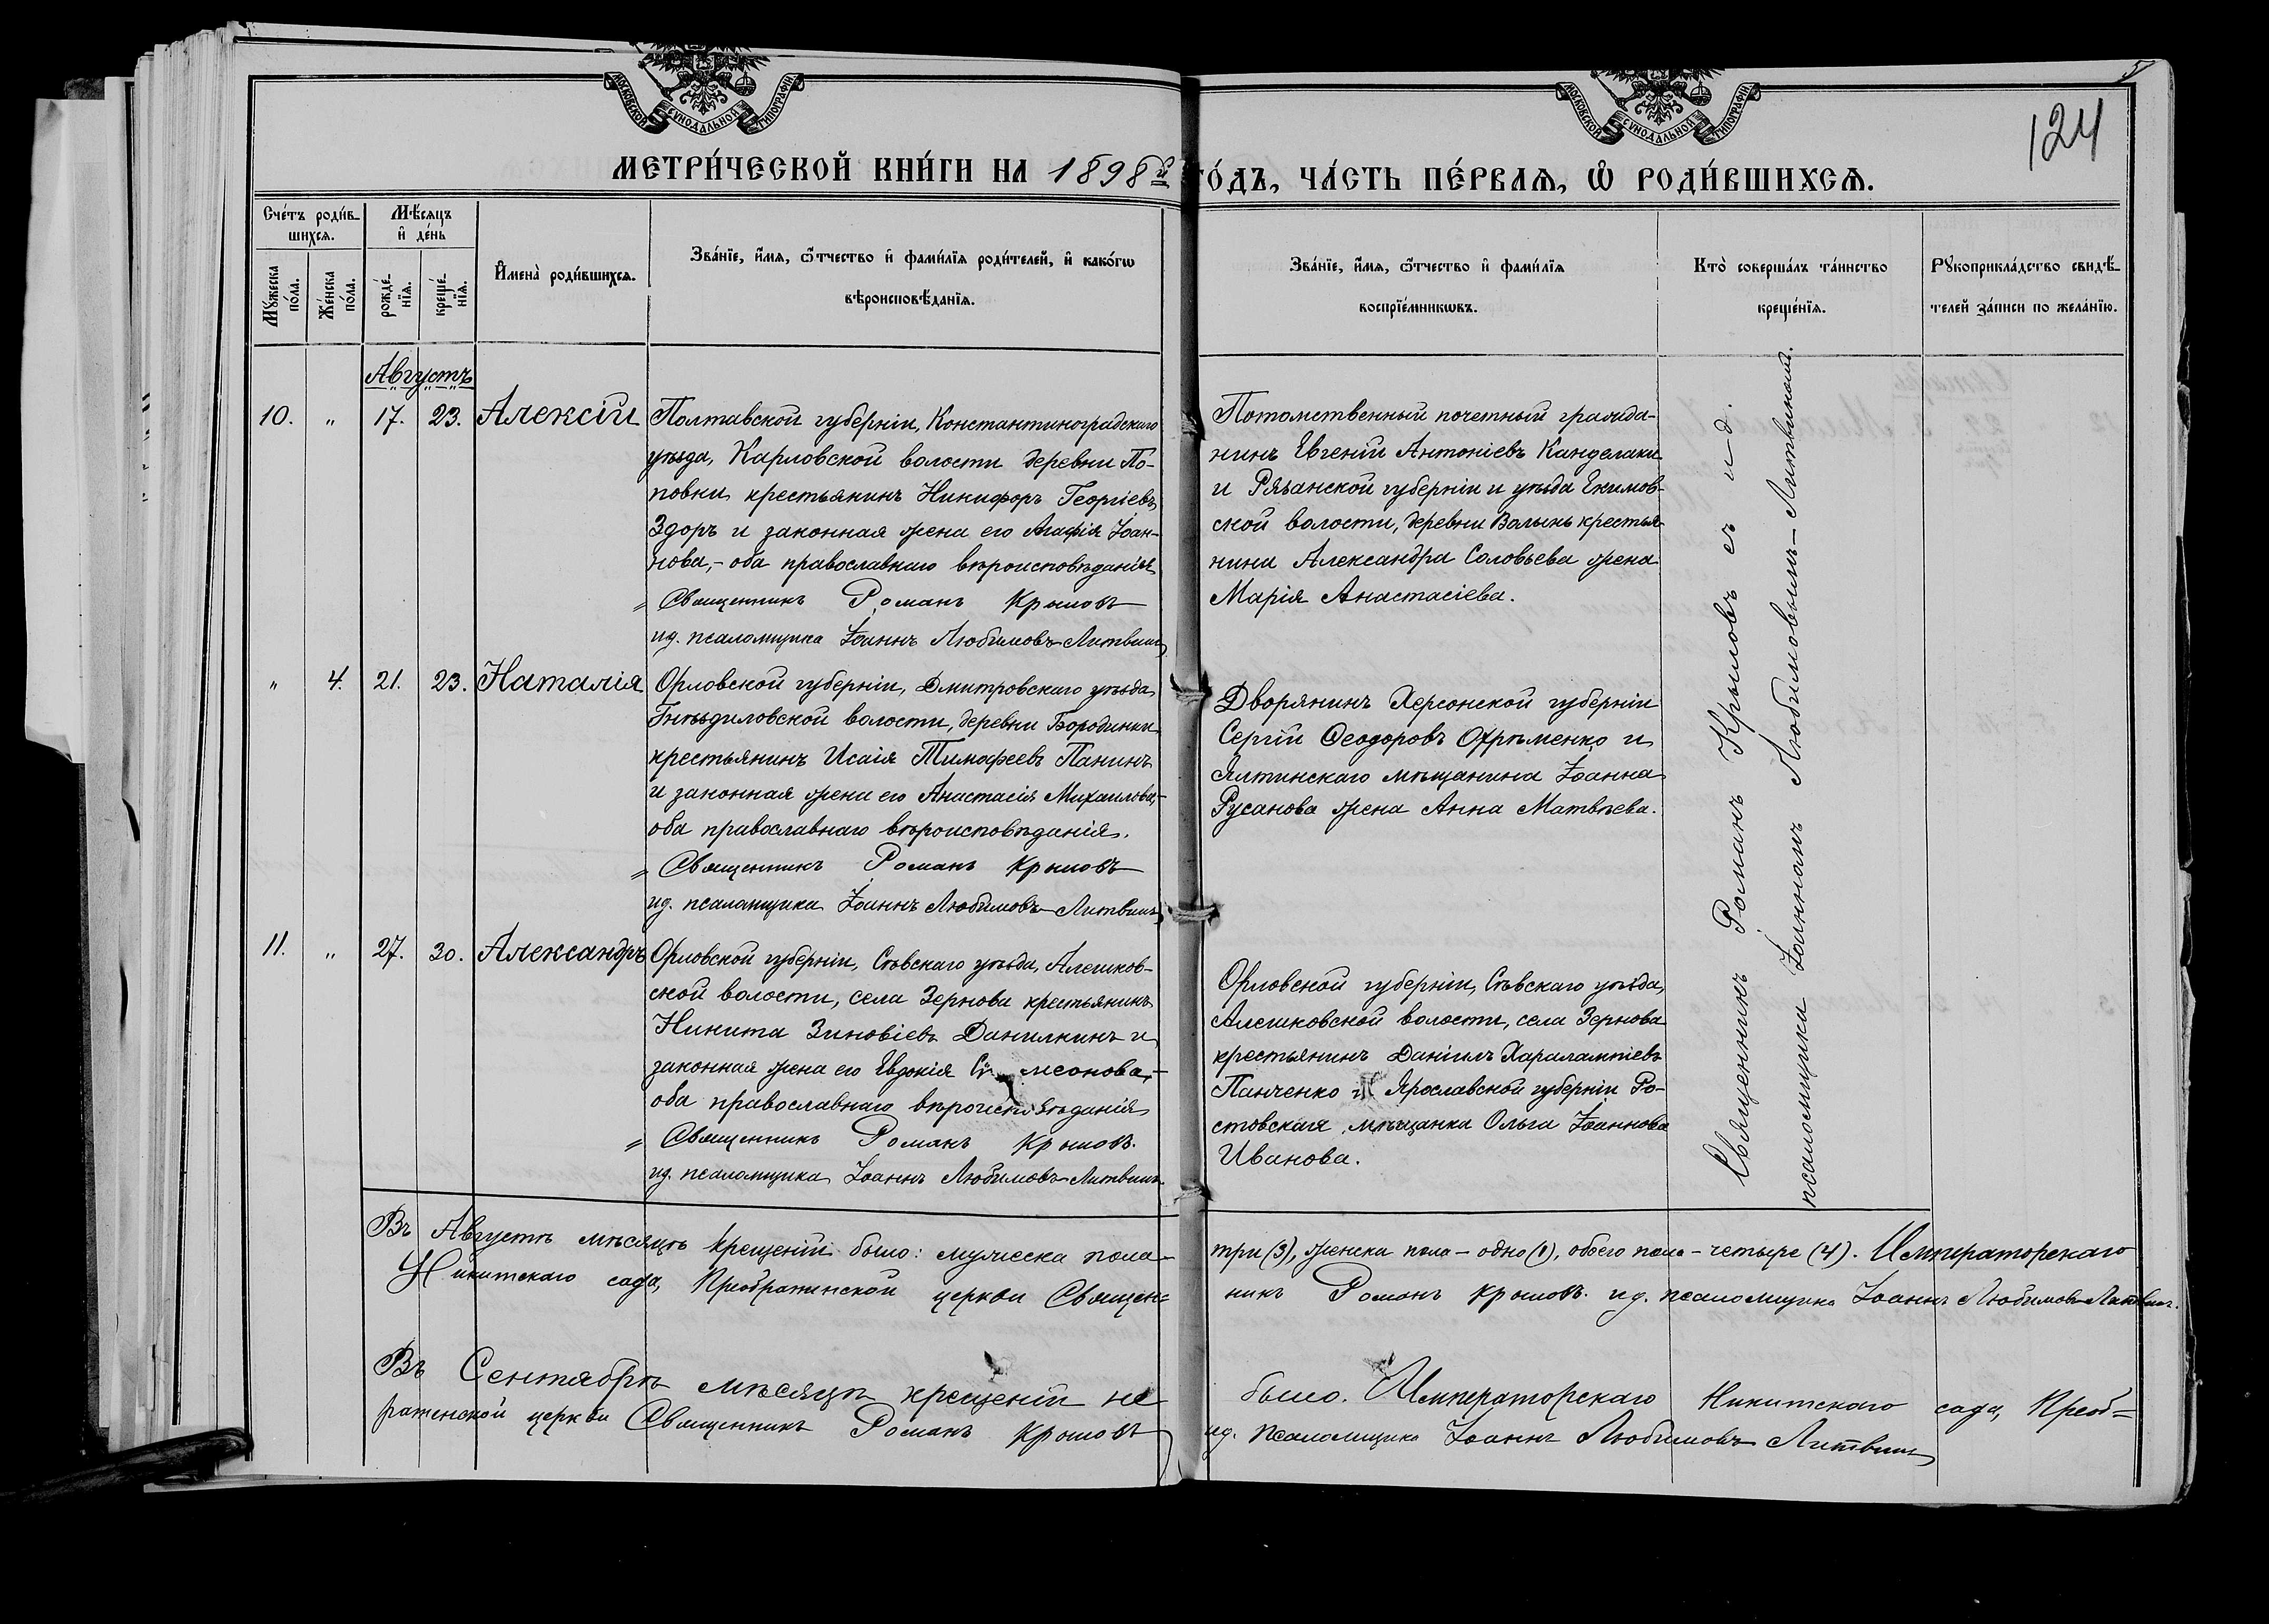 МОСКОВСКОЙ СѴНОДАЛЬНОЙ ТИПОГРАФІИ
МОСКОВСКОЙ СѴНОДАЛЬНОЙ ТИПОГРАФІИ
5
124
МЕТРИ́ЧЕСКОЙ КНИ́ГИ НА 1898й ГО́ДЪ, ЧА́СТЬ ПЕ́РВАѦ, Ѡ҆ РОДИ́ВШИХСѦ.
Сче́тъ роди́в-
шихсѧ.
Мѣ́сѧцъ
и҆ де́нь
Мꙋжеска
по́ла.
Же́нска
по́ла.
рожде́-
нїѧ.
креще́-
нїѧ.
И҆мена̀ роди́вшихсѧ.
Зва́нїе, и҆́мѧ, ѻ҆́тчество и҆ фами́лїѧ роди́телей, и҆ како́гѡ
вѣроисповѣ́данїѧ.
Зва́нїе, и҆́мѧ, ѻ҆́тчество и҆ фами́лїѧ
воспрїе́мникѡвъ.
Кто̀ соверша́лъ та́инство
креще́нїѧ.
Рꙋкоприкла́дство свидѣ́-
телей за́писи по жела́нїю.
Августъ
10. " 17. 23. Алексій
Полтавской губерніи, Константиноградскаго
уѣзда, Карловской волости деревни По-
повки крестьянинъ Никифоръ Георгіевъ
Здоръ и законная жена его Агафія Іоан-
нова, - оба православнаго вѣроисповѣданія
Священникъ Романъ Крыловъ
ид. псаломщика Іоаннъ Любимовъ-Литвинъ
Потомственный почетный гражда-
нинъ Евгеній Антоніевъ Канделаки
и Рязанской губерніи и уѣзда Екимов-
ской волости, деревни Волынь крестья-
нина Александра Соловьева жена
Марія Анастасіева.
" 4. 21. 23. Наталія
Орловской губерніи, Дмитровскаго уѣзда
Гнѣздиловской волости, деревни Бородинки
крестьянинъ Исаія Тимофеевъ Панинъ
и законная жена его Анастасія Михаилова, -
оба православнаго вѣроисповѣданія.
Священникъ Романъ Крыловъ
ид. псаломщика Іоаннъ Любимовъ-Литвинъ
Дворянинъ Херсонской губерніи
Сергій Ѳеодоровъ Охрѣменко и
Ялтинскаго мѣщанина Іоанна
Русанова жена Анна Матвѣева.
11. " 27. 30. Александръ
Орловской губерніи, Сѣвскаго уѣзда, Алешков-
ской волости, села Зернова крестьянинъ
Никита Зиновіевъ Данилкинъ и
законная жена его Евдокія Си меонова, -
оба православнаго вѣроисповѣданія
Священникъ Романъ Крыловъ.
ид. псаломщика Іоаннъ Любимовъ-Литвинъ.
Орловской губерніи, Сѣвскаго уѣзда,
Алешковской волости, села Зернова
крестьянинъ Даніилъ Харалампіевъ
Панченко и Ярославской губерніи Ро-
стовская мѣщанка Ольга Іоаннова
Иванова.
Священникъ Романъ Крыловъ съ и. д.
псаломщика Іоанномъ Любимовымъ-Литвиномъ.
Въ Августѣ мѣсяцѣ крещеній было: мужеска пола - три (3), женска пола - одно (1), обоего пола - четыре (4). Императорскаго
Никитскаго сада, Преображенской церкви Священ= никъ Романъ Крыловъ. ид. псаломщика Іоаннъ Любимовъ-Литвинъ.
Въ Сентябрѣ мѣсяцѣ крещеній не было. Императорскаго Никитскаго сада, Преоб=
раженской церкви Священникъ Романъ Крыловъ ид. псаломщика Іоаннъ Любимовъ-Литвинъ